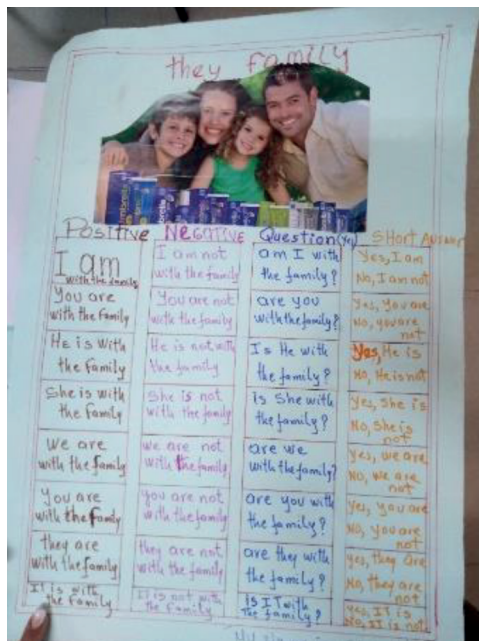 they family
Positive Negative Question(?) Short Answer
I am
with the family
I am not
with the family
am I with
the family?
Yes, I am
No, I am not
You are
with the Family
You are not
with the family
are you
with the family?
Yes, You are
No, you are
not
He is With
the family
He is not with
the family
Is He with
the family?
Yes, He is
No, He is not
She is with
the family
She is not
with the family
Is She with
the family?
Yes, She is
No, She is
not
We are
with the family
we are not
with the family
are we
with the family?
Yes, we are
No, we are
not
You are
with the family
you are not
with the family
are you with
the family?
Yes, you are
No, you are
not
they are
with the family
they are not
with the family
are they with
the family?
Yes, they are
No, they are
not
It is with
the family
It is not with
the family
Is IT with
the family?
Yes, IT is
No, IT is not